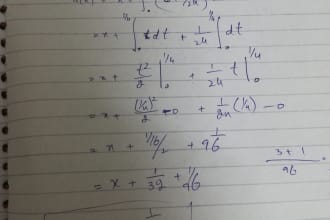 = x + ∫₀^{1/4} t dt + 1/24 ∫₀^{1/4} dt
= x + t²/2 |₀^{1/4} + 1/24 t |₀^{1/4}
= x + (1/4)²/2 - 0 + 1/24 (1/4) - 0
= x + 1/16/2 + 1/96
3+1/96
= x + 1/32 + 1/96
1